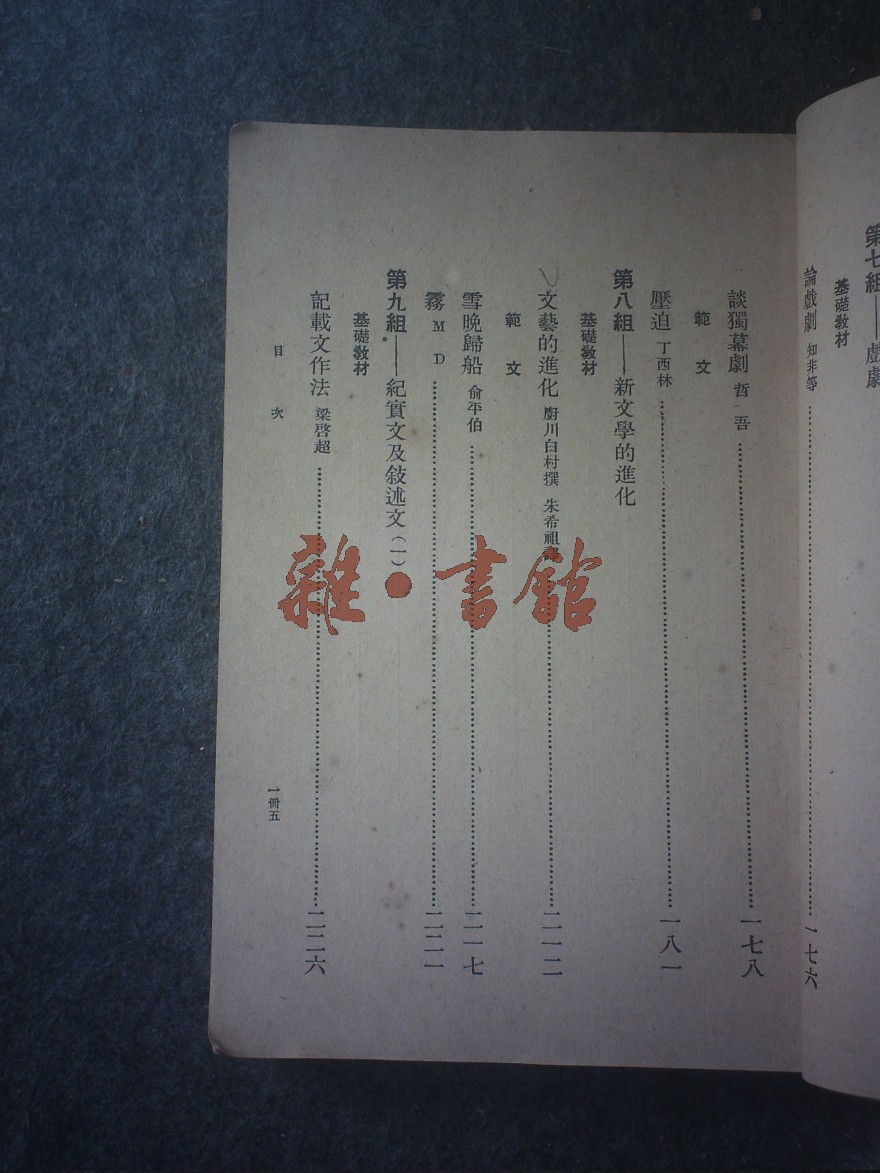 第七組——戲劇
基礎教材
論戲劇 知非等 一七六
談獨幕劇 哲吾 一七八
範文
壓迫 丁西林 一八一
第八組——新文學的進化
基礎教材
文藝的進化 廚川白村撰 朱希祖 二一二
範文
雪晚歸船 俞平伯 二一七
霧 M D 二二一
第九組——紀實文及敍述文(一)
基礎教材
記載文作法 梁啓超 二二六
目次
一冊五
雜●書館